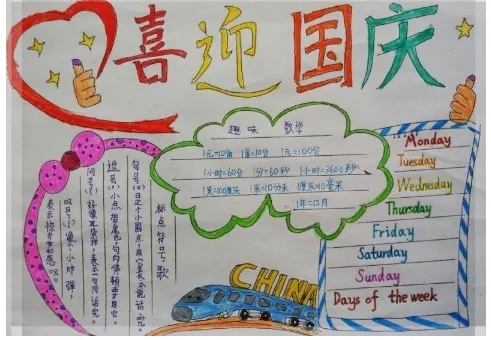 喜迎国庆
趣味 数学
1元=10角 1角=10分 1元=100分
1小时=60分 1分=60秒 1小时=3600秒
1米=100厘米 1米=10分米 1厘米=10毫米
1年=12月
标点符号歌
句号(。)是个小圆点,用它表示说话完。
逗号(,)小点带尾巴,句内停顿要用它。
问号(?)好像耳朵样,表示一句问话完。
叹号(!)像个小炸弹,
表示惊奇和感叹。
CHINA
Monday
Tuesday
Wednesday
Thursday
Friday
Saturday
Sunday
Days of the week